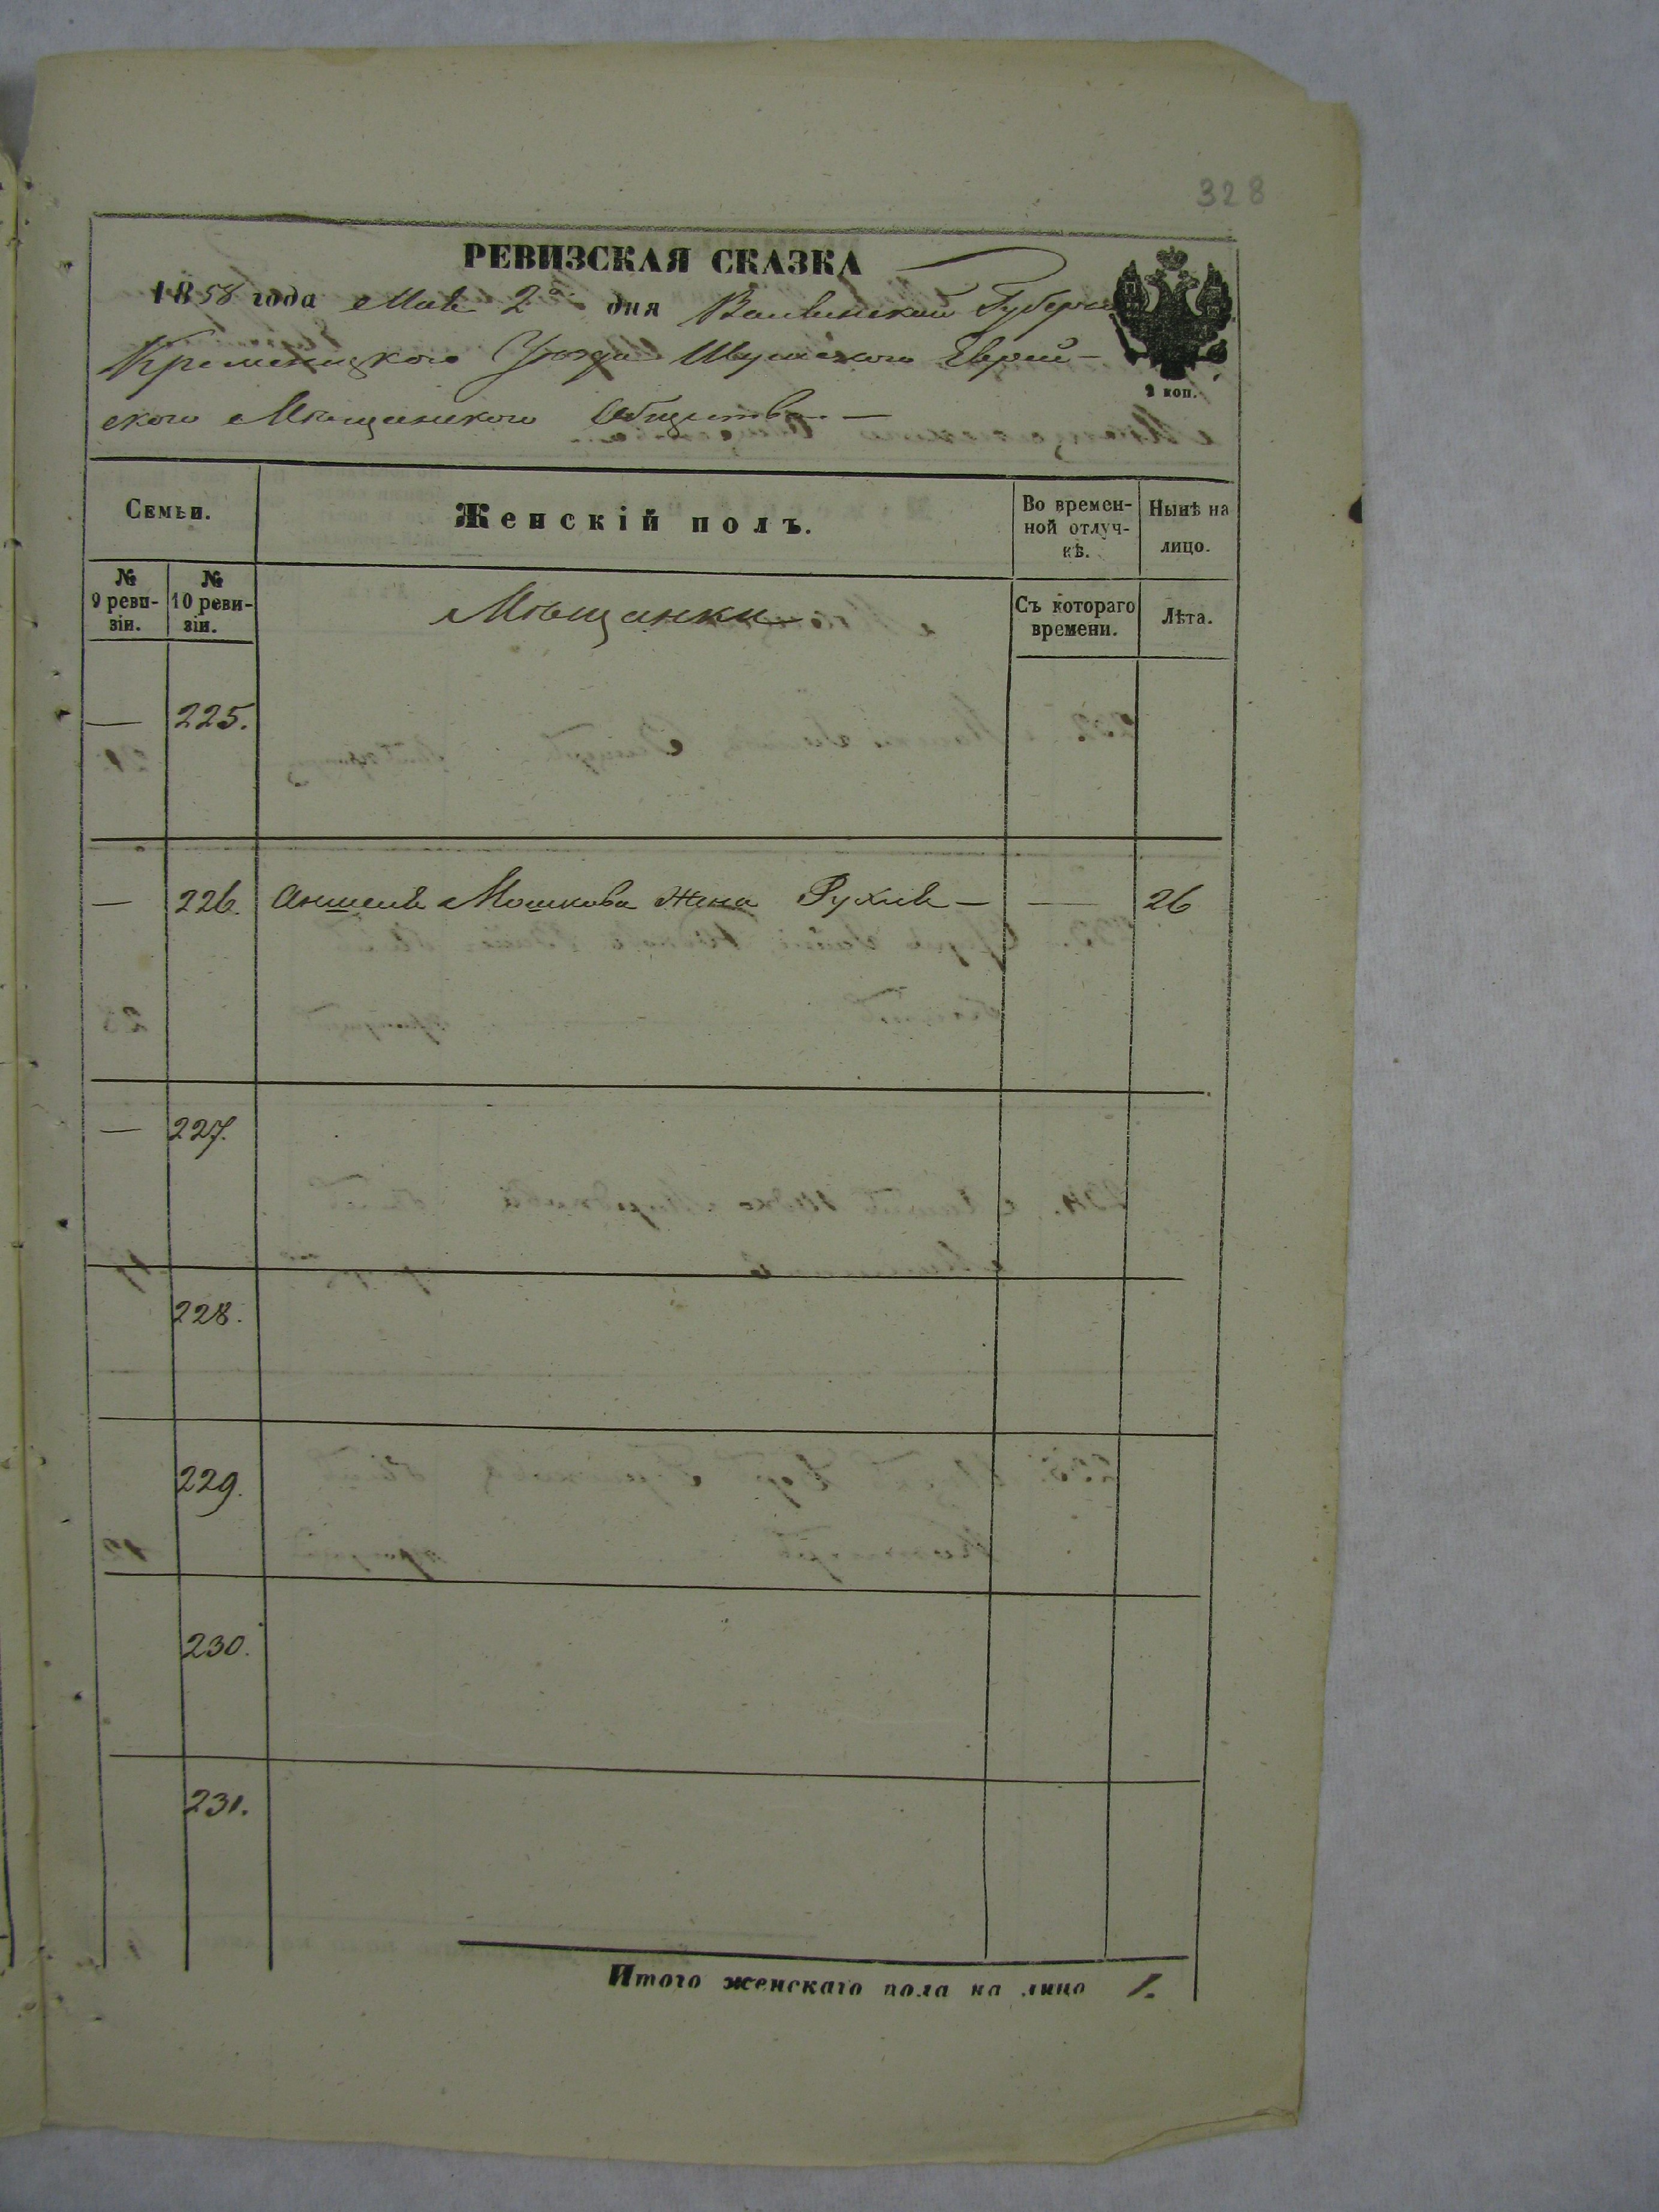 328
РЕВИЗСКАЯ СКАЗКА
1858 года Мая 2го дня Волынской Губерніи
Кременецкого Уѣзда Шумского Еврей-
ского Мѣщанского Общества. —
2 коп.
Семьи.
Женскій полъ.
Во времен-
ной отлуч-
кѣ.
Нынѣ на
лицо.
№
9 реви-
зіи.
№
10 реви-
зіи.
Мѣщанки
Съ котораго
времени.
Лѣта.
— 225.
— 226. Аншеля Мошкова жена Рухля — — 26
— 227.
228.
229.
230.
231.
Итого женскаго пола на лицо 1.